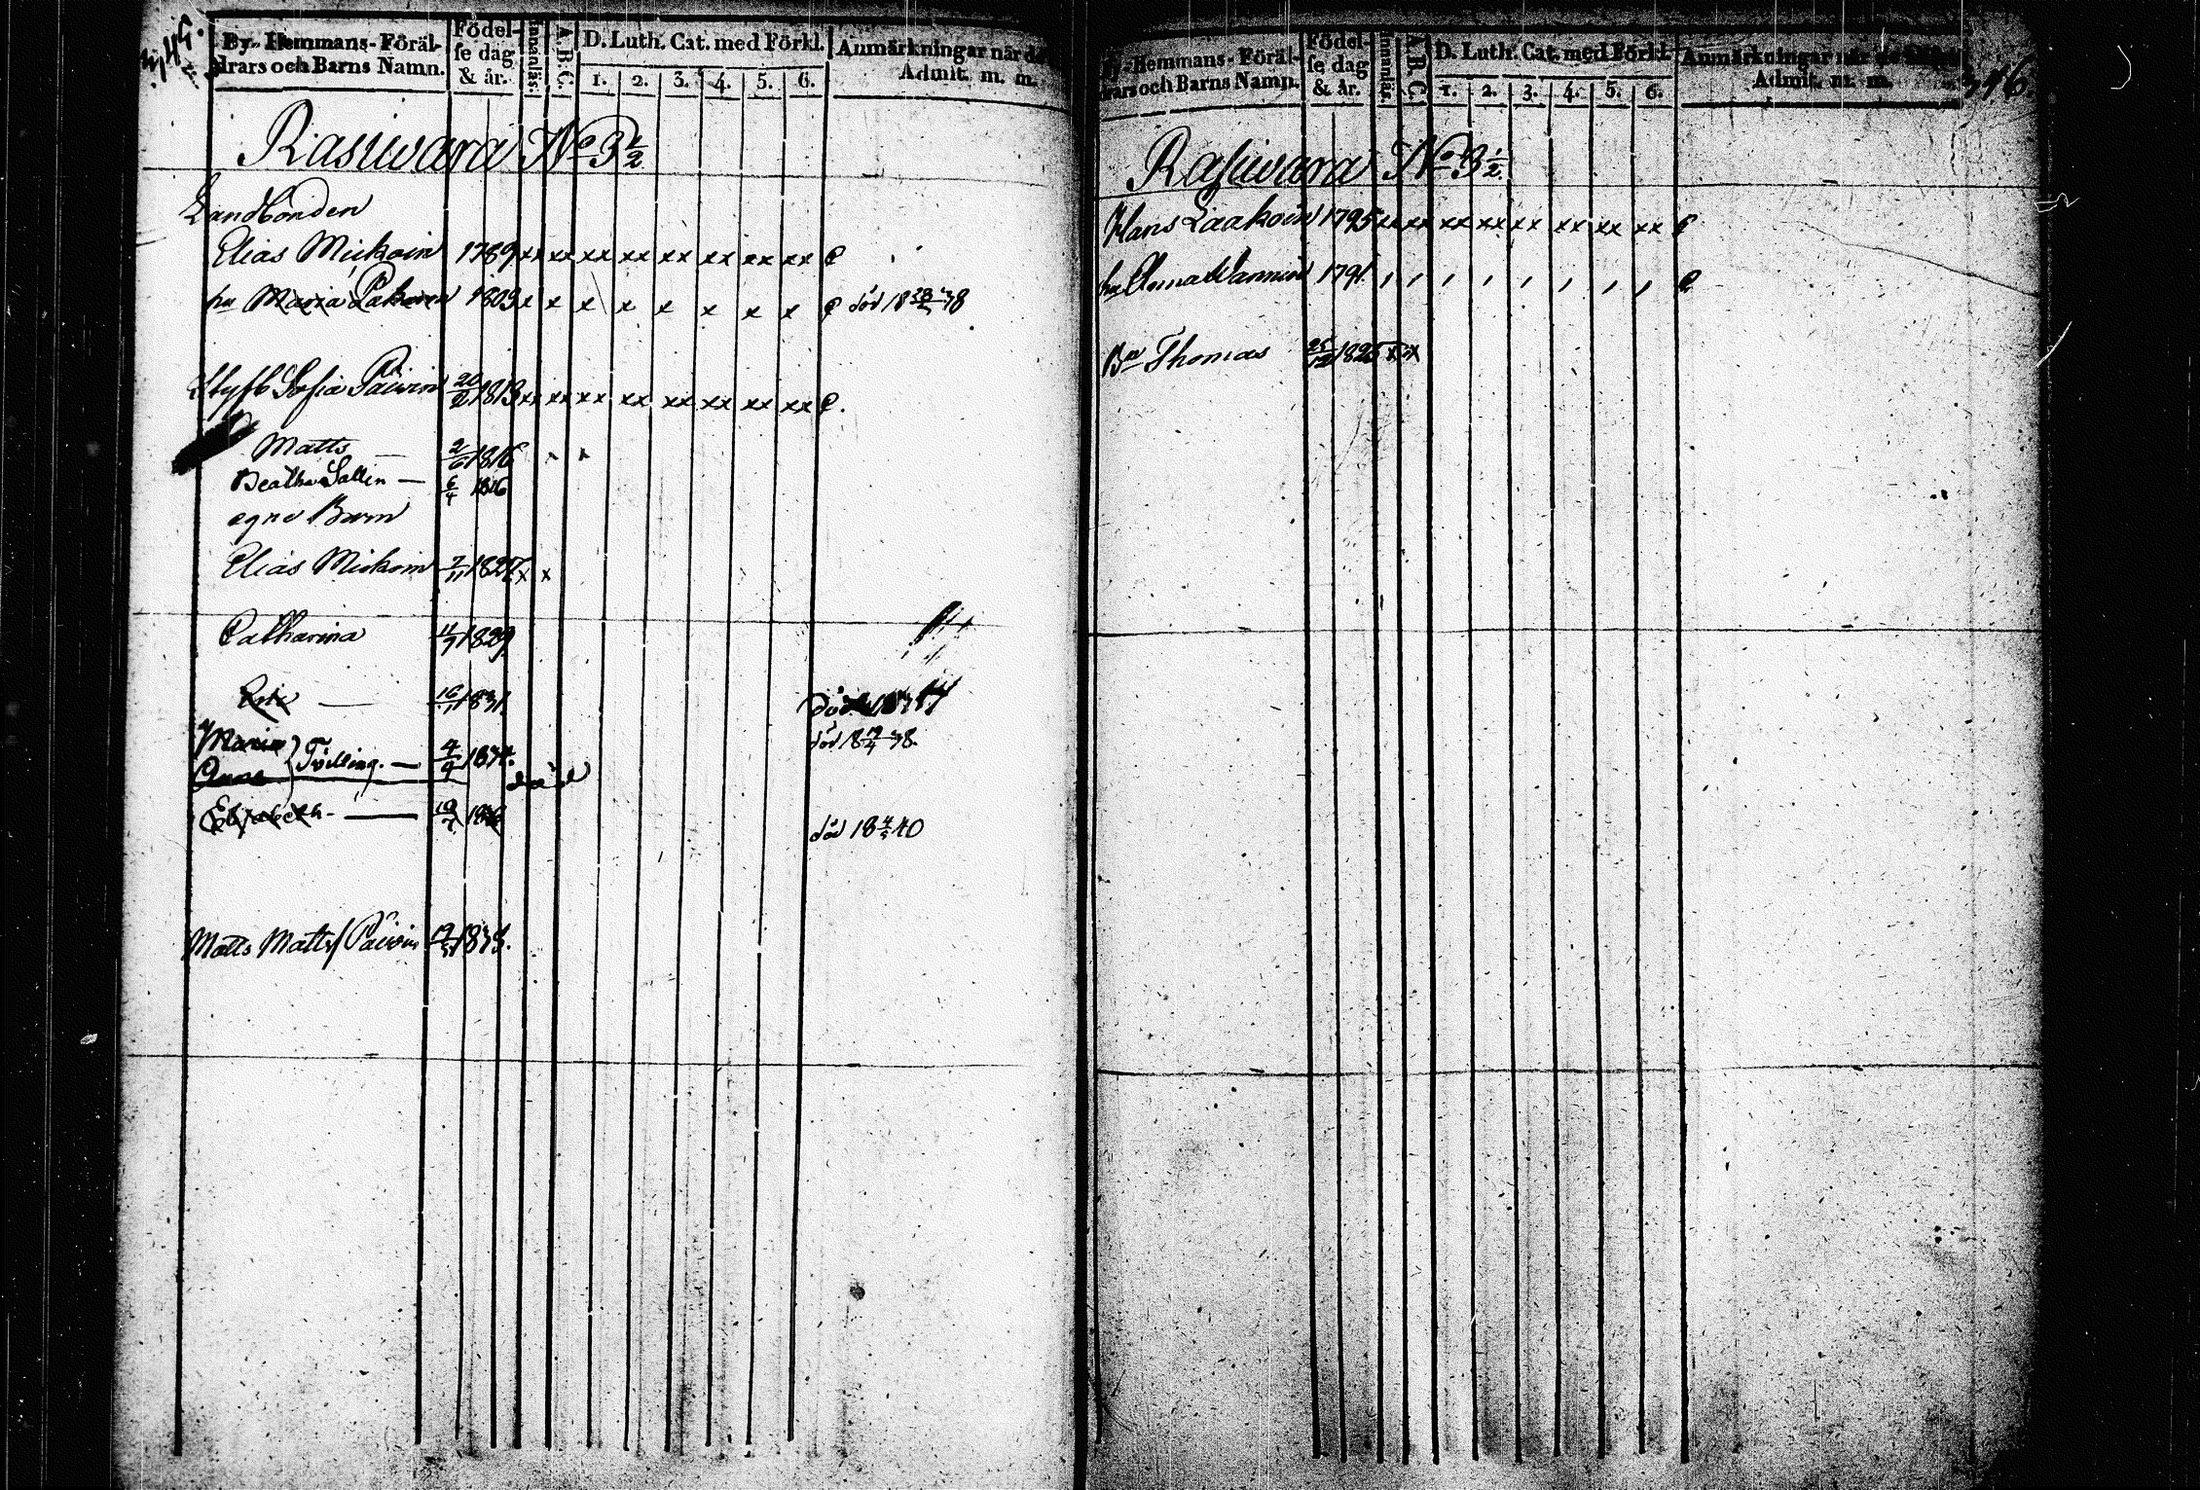 345.
By- Hemmans- Föräl-
drars och Barns Namn.
Födel-
se dag
& år.
Innanläs.
A. B. C.
D. Luth. Cat. med Förkl.
1. 2. 3. 4. 5. 6.
Anmärkningar när de
Admit. m. m.
Rasiwara No 3 1/2
Landbonden
Elias Mickoin 1789 xx xx xx xx xx xx xx xx
hu Maria Pakoren 1803 x x x x x x x x död 18 28/5 38
Styfb Sofia Päivin 20/2 1813 xx xx xx xx xx xx xx xx
Matts — 2/6 1816 x x
Beatha Sallin — 6/4 1816
egne Barn
Elias Mickoin 7/11 1827 x x
Catharina 11/9 1829
Eric — 16/11 1831 död
Maria död 18 19/4 38.
Anna } Tvilling. — 4/9 1834. död
Elisabeth. — 19/7 1836 död 18 4/5 40
Matts Matts Päivin 19/5 1835.
346.
By- Hemmans- Föräl-
drars och Barns Namn.
Födel-
se dag
& år.
Innanläs.
A. B. C.
D. Luth. Cat. med Förkl.
1. 2. 3. 4. 5. 6.
Anmärkningar när de
Admit. m. m.
Rasiwara No 3 1/2.
Hans Laakoin 1795 xx xx xx xx xx xx xx xx
hu Anna Wannin 1791
Bn Thomas 25/12 1825 x x